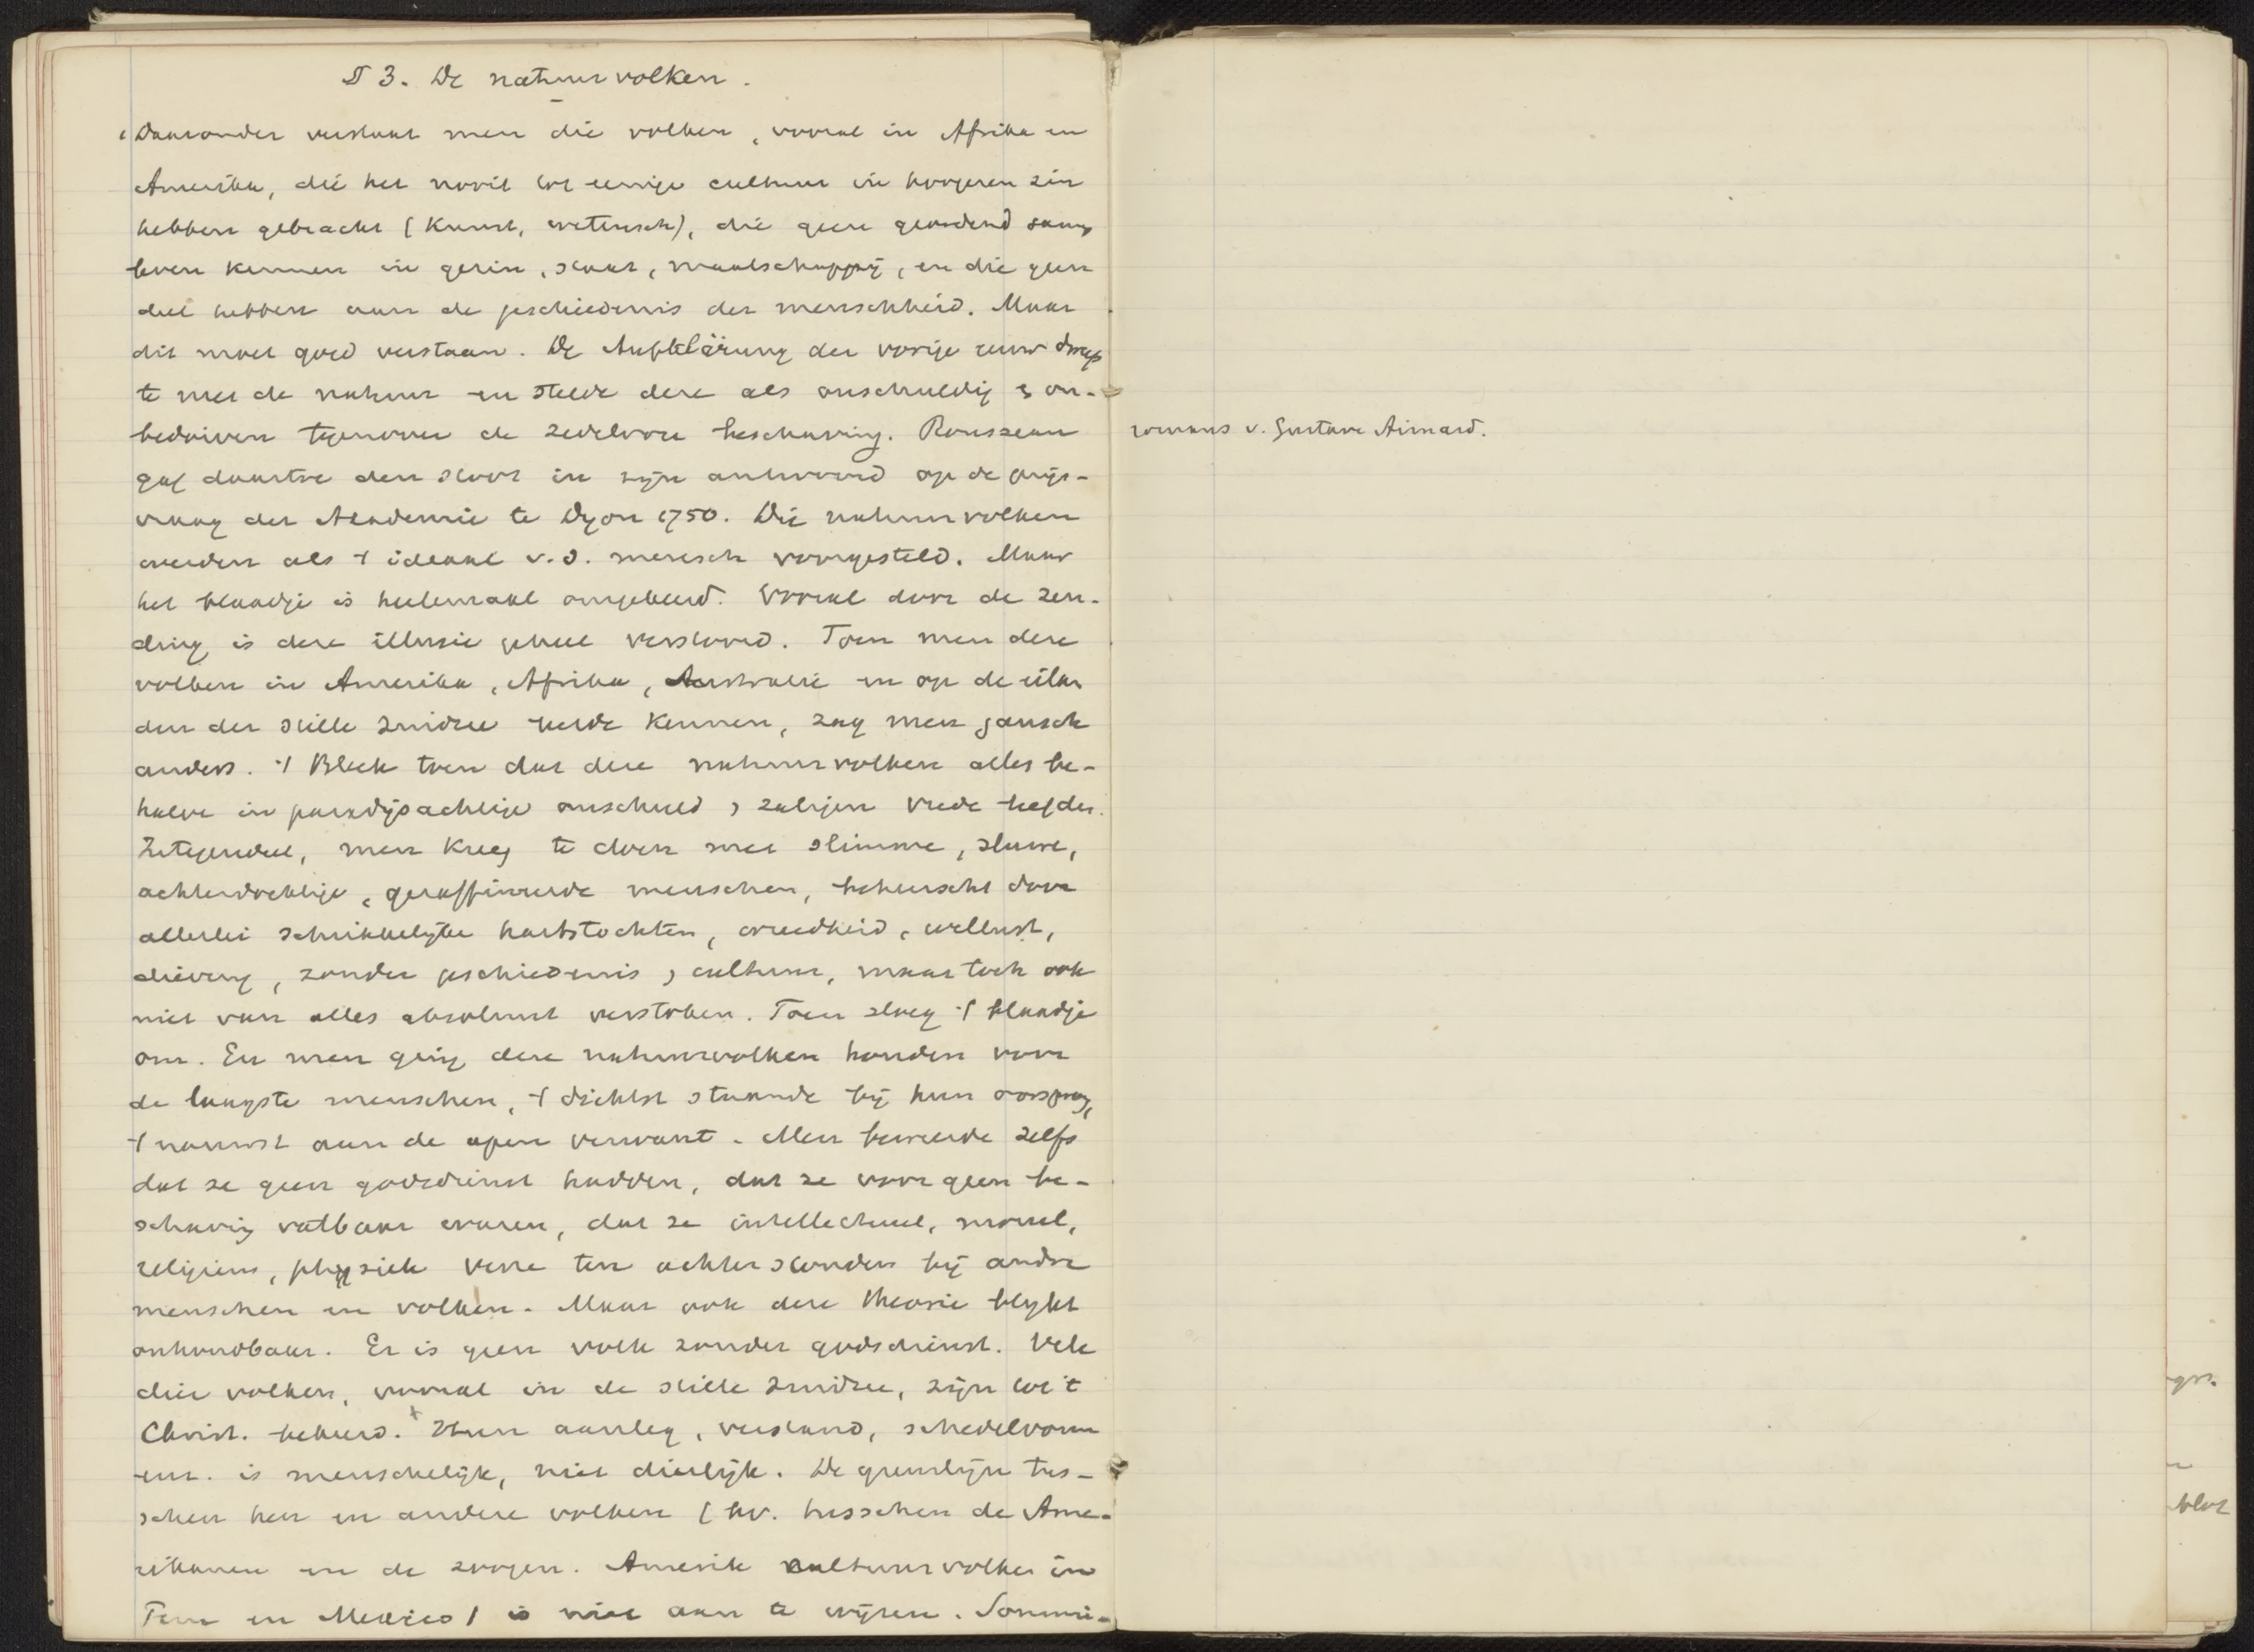 § 3. De natuurvolken.
Daaronder verstaat men die volken, vooral in Afrika en
Amerika, die het nooit tot eenige cultuur in hoogeren zin
hebben gebracht (Kunst, wetensch), die geen geordend samen
leven kennen in gezin, staat, maatschappij, en die geen
deel hebben aan de geschiedenis der menschheid. Maar
dit moet goed verstaan. De Aufklärung der vorige eeuw dweep
te met de natuur en stelde deze als onschuldig & on-
bedorven tegenover de zedelooze beschaving. Rousseau
gaf daartoe den stoot in zijn antwoord op de prijs-
vraag der Akademie te Dyon 1750. Die natuurvolken
werden als 't ideaal v. d. mensch voorgesteld. Maar
het blaadje is heelemaal omgekeerd. Vooral door de zen-
ding is deze illusie geheel verstoord. Toen men deze
volken in Amerika, Afrika, Australië en op de eilan
den der stille Zuidzee leerde kennen, zag men gansch
anders. 't Bleek toen dat deze natuurvolken alles be-
halve in paradijsachtige onschuld & zaligen vrede leefden.
Integendeel, men kreeg te doen met slimme, sluwe,
achterdochtige, geraffineerde menschen, beheerscht door
allerlei schrikkelijke hartstochten, wreedheid, wellust,
dievery, zonder geschiedenis & cultuur, maar toch ook
niet van alles absoluut verstoken. Toen sloeg 't blaadje
om. En men ging deze natuurvolken houden voor
de laagste menschen, 't dichtst staande bij hun oorsprong,
't nauwst aan de apen verwant. Men beweerde zelfs
dat ze geen godsdienst hadden, dat ze voor geen be-
schaving vatbaar waren, dat ze intellectueel, moreel,
religieus, physiek verre ten achter stonden bij andre
menschen en volken. Maar ook deze theorie blykt
onhoudbaar. Er is geen volk zonder godsdienst. Vele
dier volken, vooral in de stille Zuidzee, zijn tot 't
Christ. bekeerd. + Hun aanleg, verstand, schedelvorm
enz. is menschelijk, niet dierlijk. De grenslijn tus-
schen hen en andere volken (bv. tusschen de Ame-
rikanen en de zoogen. Amerik cultuurvolken in
Peru en Mexico) is niet aan te wijzen. Sommi-
romans v. Gustave Aimard.